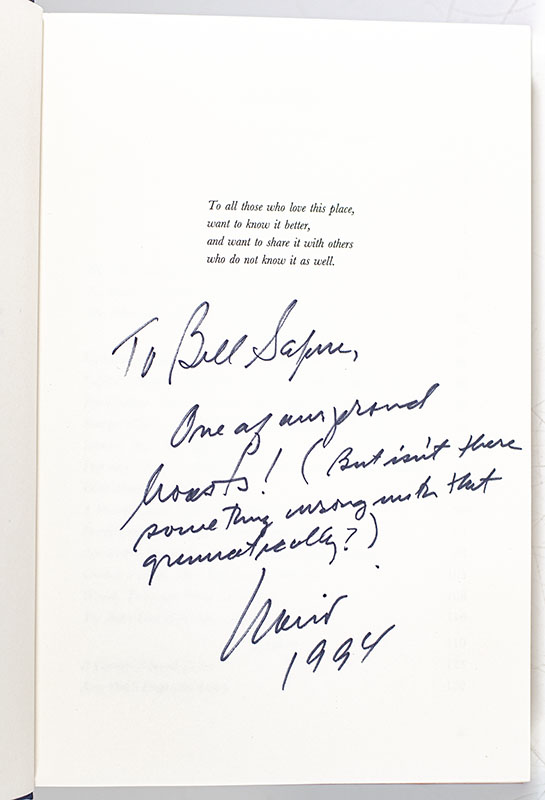 To all those who love this place,
want to know it better,
and want to share it with others
who do not know it as well.
To Bill Safire,
One of our proud
boasts! (But isn't there
something wrong with that
grammatically?)
1994